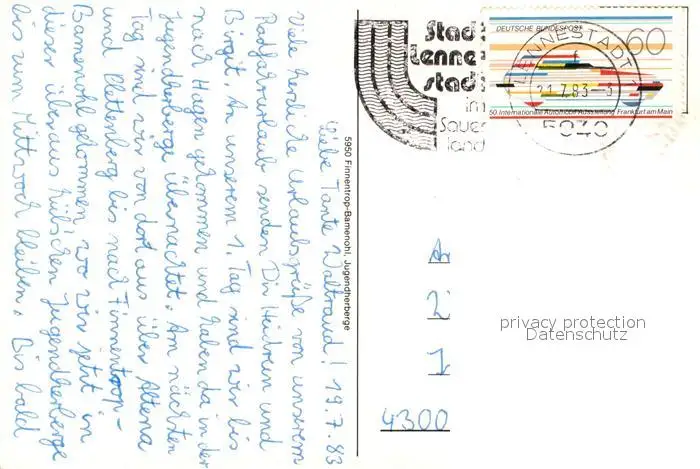 Liebe Tante Waltraud! 19.7.83
Viele herzliche Urlaubsgrüße von unserem
Radfahrurlaub senden Dir Heidrun und
Birgit. An unserem 1. Tag sind wir bis
nach Hagen gekommen und haben da in der
Jugendherberge übernachtet. Am nächsten
Tag sind wir von dort aus über Altena
und Plettenberg bis nach Finnentrop-
Bamenohl gekommen, wo wir jetzt in
dieser überaus hübschen Jugendherberge
bis zum Mittwoch bleiben. Bis bald
5950 Finnentrop-Bamenohl, Jugendherberge
Stadt
Lenne
stadt
im
Sauer
land
DEUTSCHE BUNDESPOST
60
50. Internationale Automobil-Ausstellung Frankfurt am Main
LENNESTADT 1
21.7.83-
5940
An
2
1
4300
privacy protection
Datenschutz